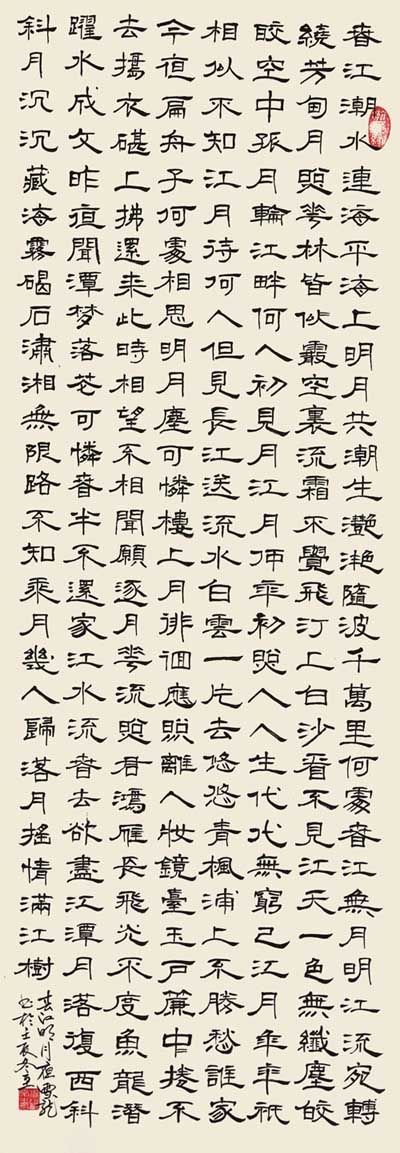 春江潮水連海平海上明月共潮生灩灩隨波千萬里何處春江無月明江流宛轉
繞芳甸月照花林皆似霰空裏流霜不覺飛汀上白沙看不見江天一色無纖塵皎
皎空中孤月輪江畔何人初見月江月何年初照人人生代代無窮已江月年年祇
相似不知江月待何人但見長江送流水白雲一片去悠悠青楓浦上不勝愁誰家
今夜扁舟子何處相思明月塵可憐樓上月徘徊應照離人妝鏡臺玉戶簾中捲不
去搗衣砧上拂還來此時相望不相聞願逐月華流照君鴻雁長飛光不度魚龍潛
躍水成文昨夜聞潭夢落花可憐春半不還家江水流春去欲盡江潭月落復西斜
斜月沉沉藏海霧碣石瀟湘無限路不知乘月幾人歸落月搖情滿江樹
春江明月夜
於壬辰冬